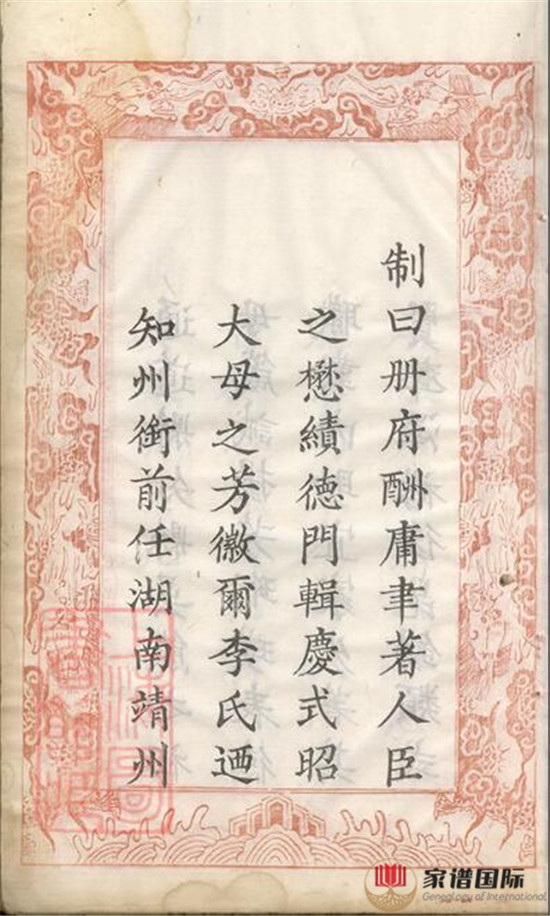 制曰册府酬庸聿著人臣
之懋績德門輯慶式昭
大母之芳徽爾李氏迺
知州銜前任湖南靖州
家谱国际
Genealogy of International